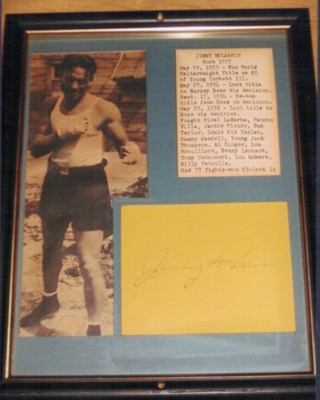 JIMMY McLARNIN
Born 1907
May 29, 1933 - Won World
Welterweight Title on KO
of Young Corbett III.
May 28, 1934 - Lost title
to Barney Ross via decision.
Sept. 17, 1934 - Re-won
title from Ross on decision.
May 28, 1935 - Lost title to
Ross via decision.
Fought Fidel LaBarba, Pancho
Villa, Jackie Fields, Bud
Taylor, Louis Kid Kaplan,
Sammy Mandell, Young Jack
Thompson, Al Singer, Lou
Brouillard, Benny Leonard,
Tony Canzoneri, Lou Ambers,
Billy Petrolle.
Had 77 fights-won 63-lost 11
Jimmy McLarnin